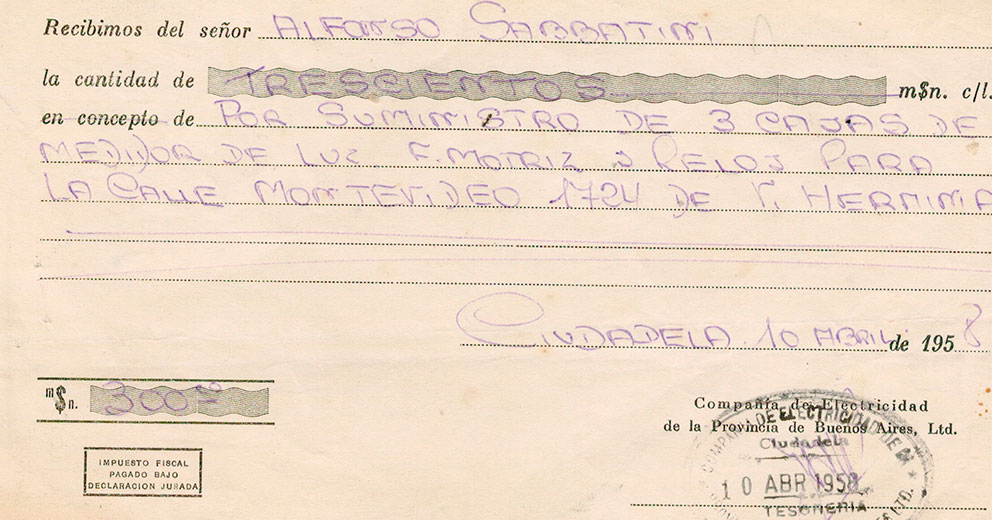 Recibimos del señor ALFONSO SABBATINI
la cantidad de TRESCIENTOS m$n. c/l.
en concepto de POR SUMINISTRO DE 3 CAJAS DE
MEDIDOR DE LUZ F. MOTRIZ Y RELOJ PARA
LA CALLE MONTEVIDEO 1724 DE V. HERMINIA
CIUDADELA 10 ABRIL de 1958
m$n. 300
Compañía de Electricidad
de la Provincia de Buenos Aires, Ltd.
COMPAÑIA DE ELECTRICIDAD DE
Ciudadela
10 ABR 1958
TESORERIA
LTD.
IMPUESTO FISCAL
PAGADO BAJO
DECLARACION JURADA